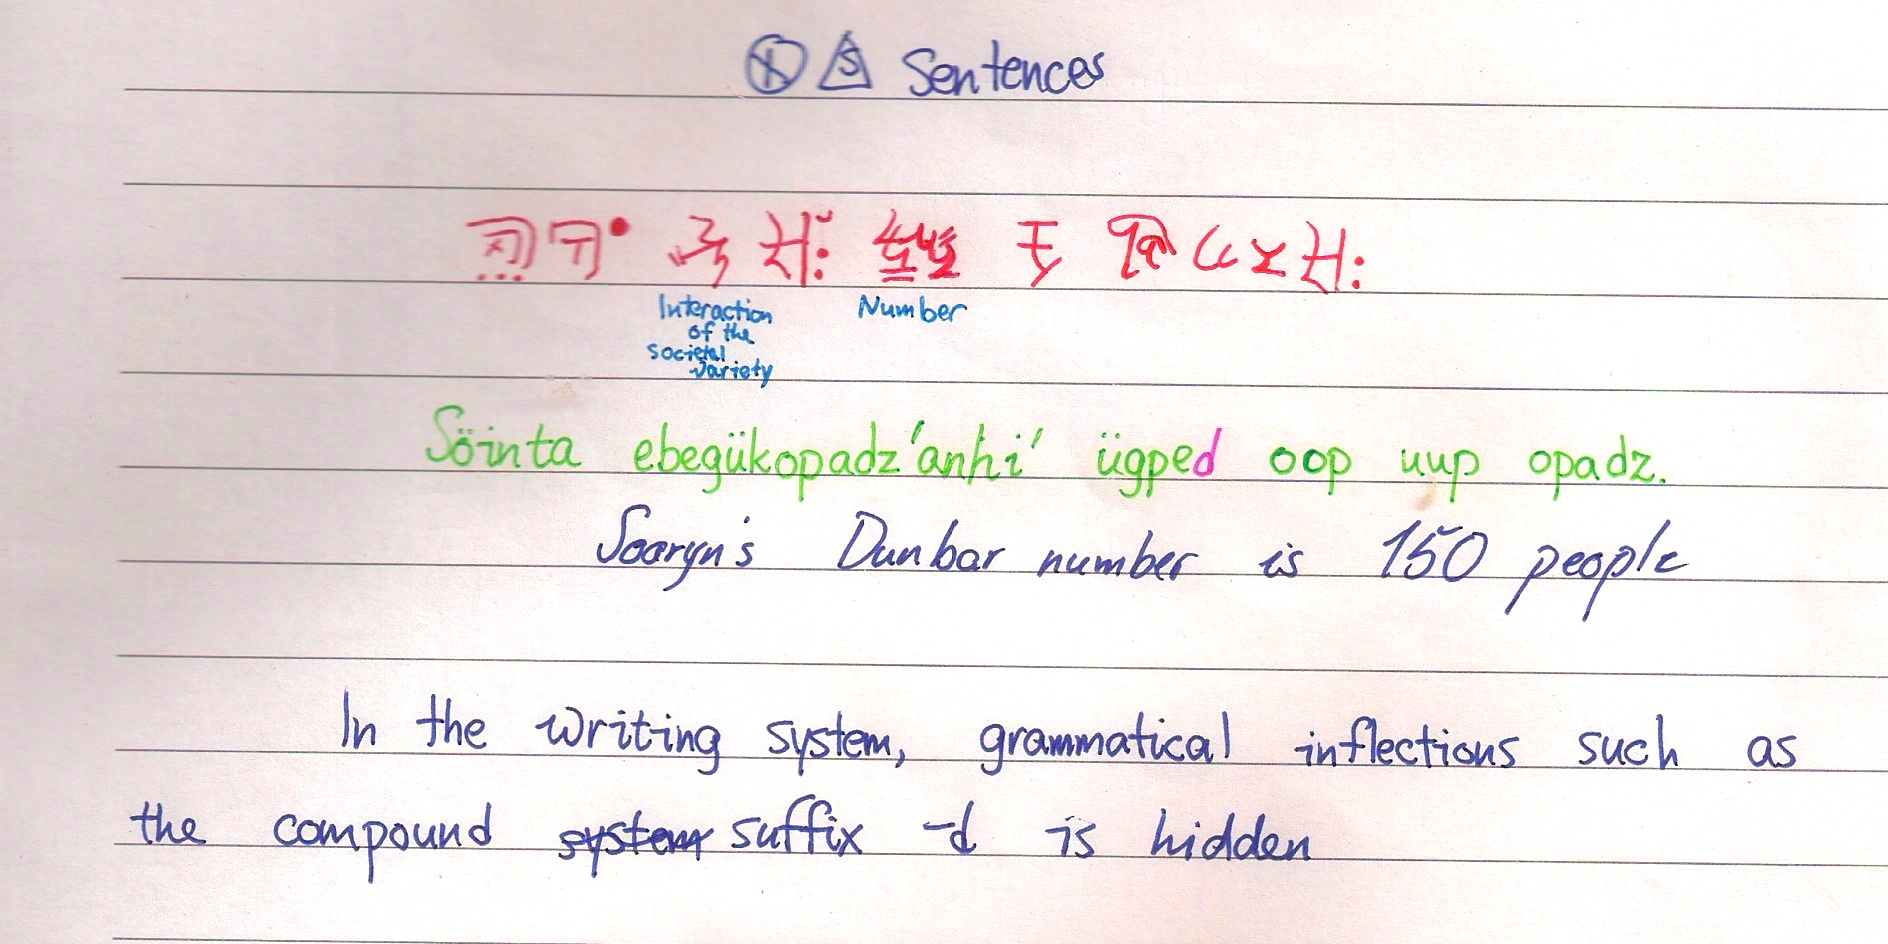 Sentences
Interaction
of the
societal
variety
Number
Söinta ebegükopadz'anhi' ügped oop uup opadz.
Sooryn's Dunbar number is 150 people
In the writing system, grammatical inflections such as
the compound system suffix -d is hidden